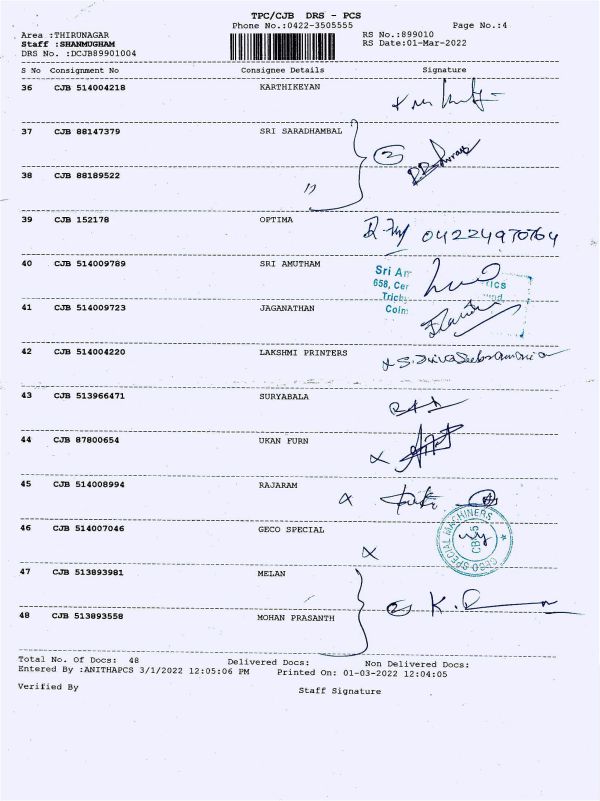 TPC/CJB DRS - PCS
Phone No.:0422-3505555 Page No.:4
Area :THIRUNAGAR RS No.:899010
Staff :SHANMUGHAM RS Date:01-Mar-2022
DRS No. :DCJB89901004
S No Consignment No Consignee Details Signature
36 CJB 514004218 KARTHIKEYAN
37 CJB 88147379 SRI SARADHAMBAL
2
38 CJB 88189522 "
39 CJB 152178 OPTIMA 04224970764
40 CJB 514009789 SRI AMUTHAM
Sri Am
658, Cer
Trich
Coim
41 CJB 514009723 JAGANATHAN
42 CJB 514004220 LAKSHMI PRINTERS x S. Siva Subramania
43 CJB 513966471 SURYABALA
44 CJB 87800654 UKAN FURN x
45 CJB 514008994 RAJARAM x
46 CJB 514007046 GECO SPECIAL x
GECO SPECIAL MACHINERS
47 CJB 513893981 MELAN
2 K.
48 CJB 513893558 MOHAN PRASANTH
Total No. Of Docs: 48 Delivered Docs: Non Delivered Docs:
Entered By :ANITHAPCS 3/1/2022 12:05:06 PM Printed On: 01-03-2022 12:04:05
Verified By Staff Signature